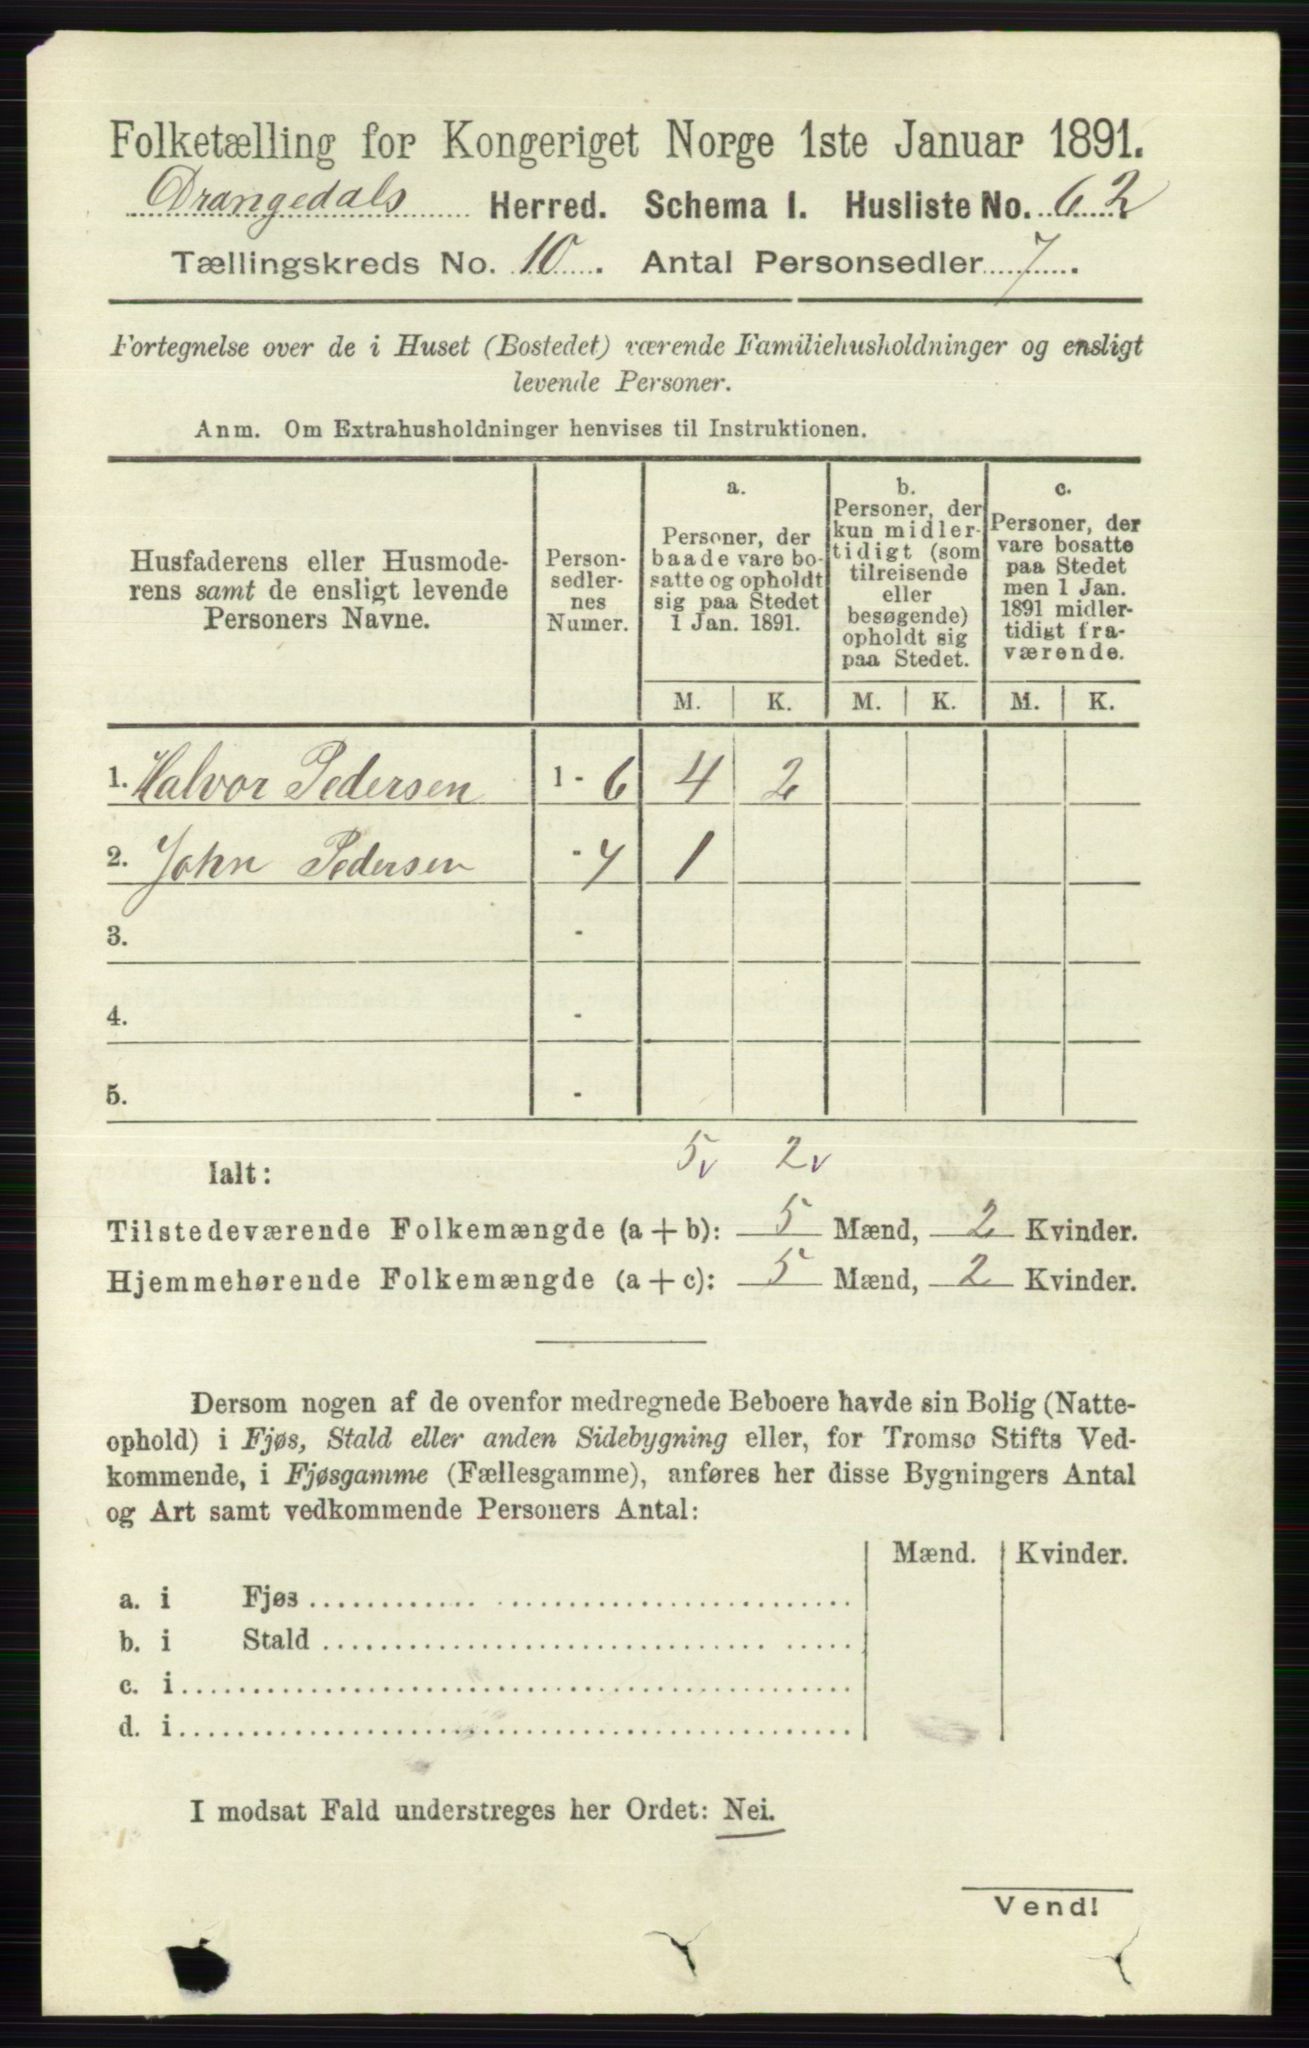 Folketælling for Kongeriget Norge 1ste Januar 1891.
Drangedals Herred. Schema I. Husliste No. 62
Tællingskreds No. 10. Antal Personsedler 7.
Fortegnelse over de i Huset (Bostedet) værende Familiehusholdninger og ensligt
levende Personer.
Anm. Om Extrahusholdninger henvises til Instruktionen.
Husfaderens eller Husmode-
rens samt de ensligt levende
Personers Navne.
Person-
sedler-
nes
Numer.
a.
Personer, der
baade vare bo-
satte og opholdt
sig paa Stedet
1 Jan. 1891.
b.
Personer, der
kun midler-
tidigt (som
tilreisende
eller
besøgende)
opholdt sig
paa Stedet.
c.
Personer, der
vare bosatte
paa Stedet
men 1 Jan.
1891 midler-
tidigt fra-
værende.
M. K. M. K. M. K.
1. Halvor Pedersen 1 - 6 4 2
2. John Pedersen - 7 1
3. -
4. -
5. -
Ialt: 5v 2v
Tilstedeværende Folkemængde (a + b): 5 Mænd, 2 Kvinder.
Hjemmehørende Folkemængde (a + c): 5 Mænd, 2 Kvinder.
Dersom nogen af de ovenfor medregnede Beboere havde sin Bolig (Natte-
ophold) i Fjøs, Stald eller anden Sidebygning eller, for Tromsø Stifts Ved-
kommende, i Fjøsgamme (Fællesgamme), anføres her disse Bygningers Antal
og Art samt vedkommende Personers Antal:
Mænd. Kvinder.
a. i Fjøs
b. i Stald
c. i
d. i
I modsat Fald understreges her Ordet: Nei.
Vend!